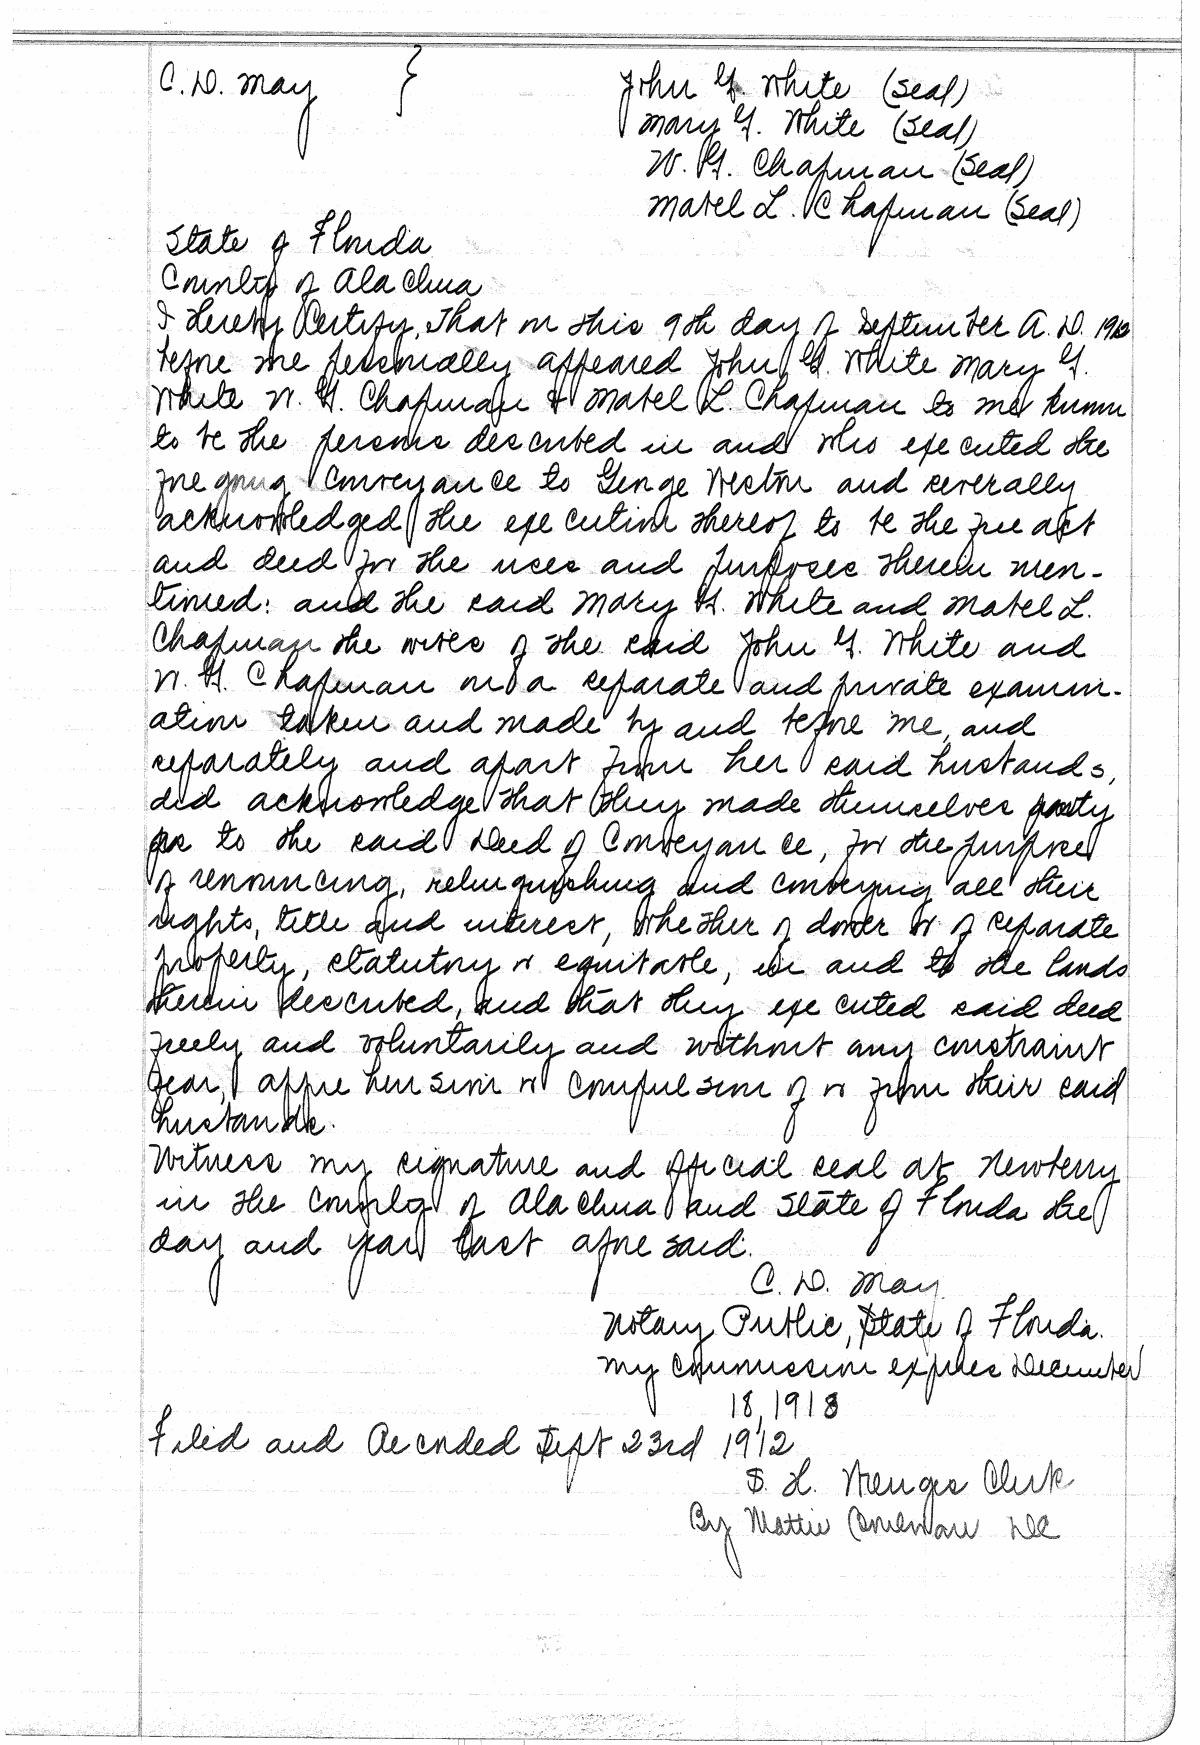 C. D. May } John G. White (Seal)
Mary G. White (Seal)
W. G. Chapman (Seal)
Mabel L. Chapman (Seal)
State of Florida
County of Alachua
I Hereby Certify, That on this 9th day of September A. D. 1912
before me personally appeared John G. White Mary G.
White W. G. Chapman & Mabel L. Chapman to me known
to be the persons described in and who executed the
foregoing Conveyance to George Weston and severally
acknowledged the execution thereof to be the free act
and deed for the uses and purposes therein men-
tioned: and the said Mary G. White and Mabel L.
Chapman the wives of the said John G. White and
W. G. Chapman on a separate and private examin-
ation taken and made by and before me, and
separately and apart from her said husbands,
did acknowledge that they made themselves party
to the said Deed of Conveyance, for the purpose
of renouncing, relinquishing and conveying all their
rights, title and interest, whether of dower or of separate
property, statutory or equitable, in and to the lands
therein described, and that they executed said deed
freely and voluntarily and without any constraint
fear, apprehension or compulsion of or from their said
husbands.
Witness my signature and official seal at Newberry
in the County of Alachua and State of Florida the
day and year last aforesaid.
C. D. May
Notary Public, State of Florida.
My commission expires December
18, 1918
Filed and Recorded Sept 23rd 1912
S. H. Wienges Clerk
By Mattie DC